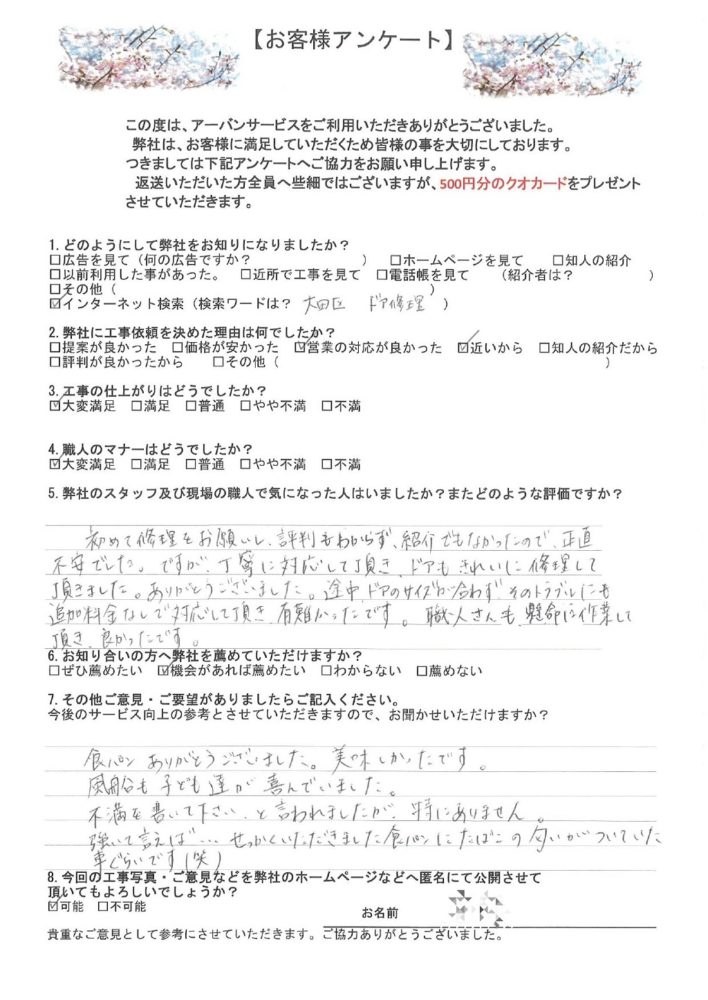 【お客様アンケート】
この度は、アーバンサービスをご利用いただきありがとうございました。
弊社は、お客様に満足していただくため皆様の事を大切にしております。
つきましては下記アンケートへご協力をお願い申し上げます。
返送いただいた方全員へ些細ではございますが、500円分のクオカードをプレゼント
させていただきます。
1.どのようにして弊社をお知りになりましたか？
□広告を見て（何の広告ですか？　　　　　　　）　□ホームページを見て　□知人の紹介
□以前利用した事があった。　□近所で工事を見て　□電話帳を見て　（紹介者は？　　　　　）
□その他（　　　　　　　　　　　　　　　　　）
☑インターネット検索（検索ワードは？　大田区　ドア修理　）
2.弊社に工事依頼を決めた理由は何でしたか？
□提案が良かった　□価格が安かった　☑営業の対応が良かった　☑近いから　□知人の紹介だから
□評判が良かったから　□その他（　　　　　　　　　　　　　　　　　）
3.工事の仕上がりはどうでしたか？
☑大変満足　□満足　□普通　□やや不満　□不満
4.職人のマナーはどうでしたか？
☑大変満足　□満足　□普通　□やや不満　□不満
5.弊社のスタッフ及び現場の職人で気になった人はいましたか？またどのような評価ですか？
初めて修理をお願いし、評判もわからず、紹介でもなかったので、正直
不安でした。ですが、丁寧に対応して頂き、ドアもきれいに修理して
頂きました。ありがとうございました。途中、ドアのサイズが合わず、そのトラブルにも
追加料金なしで対応して頂き、有難かったです。職人さんも、懸命に作業して
頂き、良かったです。
6.お知り合いの方へ弊社を薦めていただけますか？
□ぜひ薦めたい　☑機会があれば薦めたい　□わからない　□薦めない
7.その他ご意見・ご要望がありましたらご記入ください。
今後のサービス向上の参考とさせていただきますので、お聞かせいただけますか？
食パン ありがとうございました。美味しかったです。
風船も子ども達が喜んでいました。
不満を書いて下さい、と言われましたが、特にありません。
強いて言えば…せっかくいただきました食パンにたばこの匂いがついていた
事ぐらいです(笑)
8.今回の工事写真・ご意見などを弊社のホームページなどへ匿名にて公開させて
頂いてもよろしいでしょうか？
☑可能　□不可能
お名前
貴重なご意見として参考にさせていただきます。ご協力ありがとうございました。